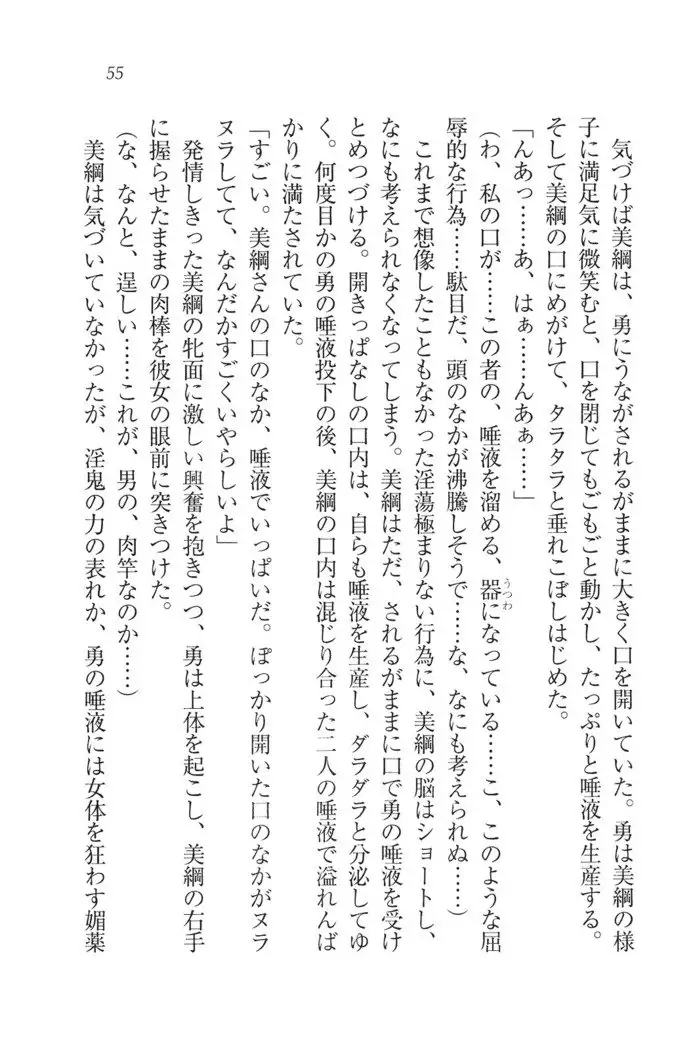 55
気づけば美綱は、勇にうながされるがままに大きく口を開いていた。勇は美綱の様
子に満足気に微笑むと、口を閉じてもごもごと動かし、たっぷりと唾液を生産する。
そして美綱の口にめがけて、タラタラと垂れこぼしはじめた。
「んあっ……あ、はぁ……んあぁ……」
(わ、私の口が……この者の、唾液を溜める、器になっている……こ、このような屈
うつわ
辱的な行為……駄目だ、頭のなかが沸騰しそうで……な、なにも考えられぬ……)
これまで想像したこともなかった淫蕩極まりない行為に、美綱の脳はショートし、
なにも考えられなくなってしまう。美綱はただ、されるがままに口で勇の唾液を受け
とめつづける。開きっぱなしの口内は、自らも唾液を生産し、ダラダラと分泌してゆ
く。何度目かの勇の唾液投下の後、美綱の口内は混じり合った二人の唾液で溢れんば
かりに満たされていた。
「すごい。美綱さんの口のなか、唾液でいっぱいだ。ぽっかり開いた口のなかがヌラ
ヌラしてて、なんだかすごくいやらしいよ」
発情しきった美綱の牝面に激しい興奮を抱きつつ、勇は上体を起こし、美綱の右手
に握らせたままの肉棒を彼女の眼前に突きつけた。
(な、なんと、逞しい……これが、男の、肉竿なのか……)
美綱は気づいていなかったが、淫鬼の力の表れか、勇の唾液には女体を狂わす媚薬